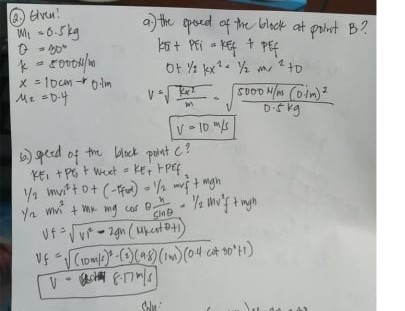 2. Given:
M₁ = 0.5kg
θ = 30°
k = 5000N/m
x = 10cm → 0.1m
μ₂ = 0.4
a.) the speed of the block at point B?
KEi + PEi = KEf + PEf
0 + ½ kx² = ½ mv² + 0
V = √(kx²/m) = √(5000 N/m (0.1m)²/0.5 kg)
V = 10 m/s
b.) speed of the block point C?
KEi + PEi + Wext = KEf + PEf
½ mvi² + 0 + (-Ffd) = ½ mvf² + mgh
½ mvi² + mk mg cos θ h/sinθ = ½ mv²f + mgh
Vf = √(Vi² - 2gh (μk cot θ + 1))
Vf = √((10m/s)² - (2)(9.8)(1m)(0.4 cot 30° + 1))
V = 8.17 m/s
Soln: